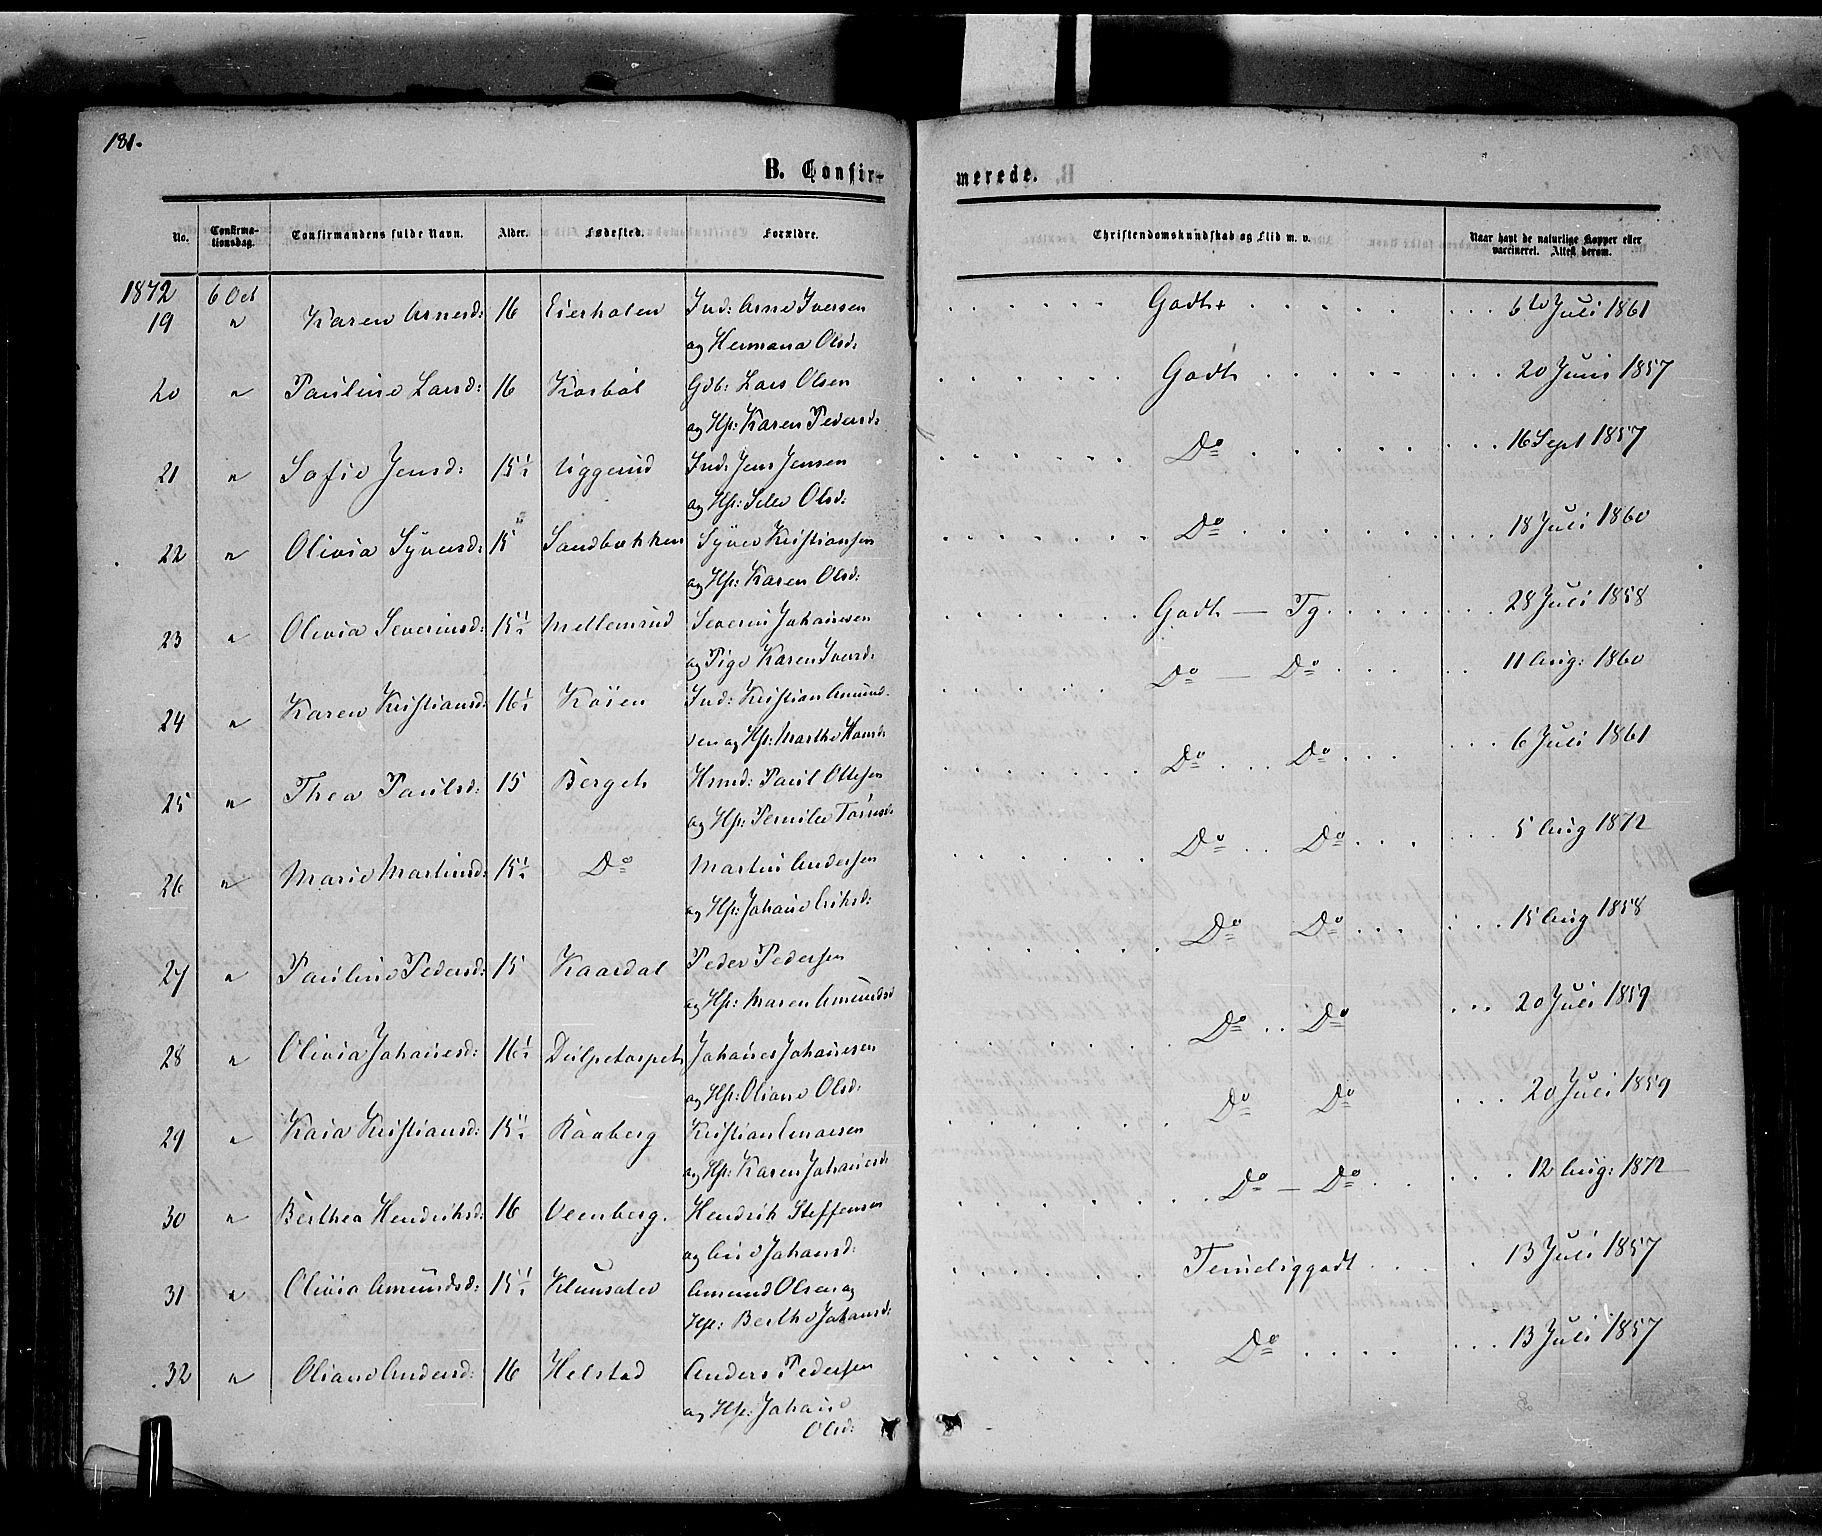 181.
B. Confir-
merede.
No.
Confirma-
tionsdag.
Confirmandens fulde Navn.
Alder.
Fødested.
Forældre.
Christendomskundskab og Flid m. v.
Naar havt de naturlige Kopper eller
vaccineret. Attest derom.
1872 6 Oct
19 " Karen Arnesd: 16 Eierholen Ind: Arne Iversen Godt 6te Juli 1861
og Hermana Olsd:
20 " Pauline Larsd: 16 Korbøl Gdb: Lars Olsen Godt 20 Juni 1857
og Hst: Karen Pedersd:
21 " Sofie Jensd: 15½ Uggerud Ind: Jens Jensen Do 16 Sept 1857
og Hst: Olsd:
22 " Olivia Syversd: 15 Sandbækken Syver Kristiansen Do 18 Juli 1860
og Hst: Karen Olsd:
23 " Olivia Severinsd: 15½ Mellemrud Severin Johannesen Godt — Tg 28 Juli 1858
og Pige Karen Iversd:
24 " Karen Kristiansd: 16½ Koien Ind: Kristian Amund- Do — Do 11 Aug: 1860
sen og Hst: Marthe Hansd:
25 " Thea Paulsd: 15 Berget Hmd: Paul Ottesen Do Do 6 Juli 1861
og Hst: Pernille
26 " Marie Martinsd: 15½ Do Martin Andersen Do Do 5 Aug 1872
og Hst: Johane Eriksd:
27 " Pauline Pedersd: 15 Kaardal Peder Pedersen Do Do 15 Aug 1858
og Hst: Maren Amundsd
28 " Olivia Johanesd: 16½ Dulpetorpet Johanes Johanesen Do Do 20 Juli 1859
og Hst: Oliane Olsd:
29 " Kaia Kristiansd: 15½ Raaberg Kristian Einarsen Do Do 20 Juli 1859
og Hst: Karen Johanesd:
30 " Berthea Hendriksd: 16 Veenberg. Hendrik Steffensen Do — Do 12 Aug: 1872
og Johansd:
31 " Olivia Amundsd: 15½ Amund Olsen og Temeliggodt 13 Juli 1857
Hst: Berthe Johansd:
32 " Oliane Andersd: 16 Helstad Anders Pedersen Do 13 Juli 1857
og Hst: Johane
Olsd: